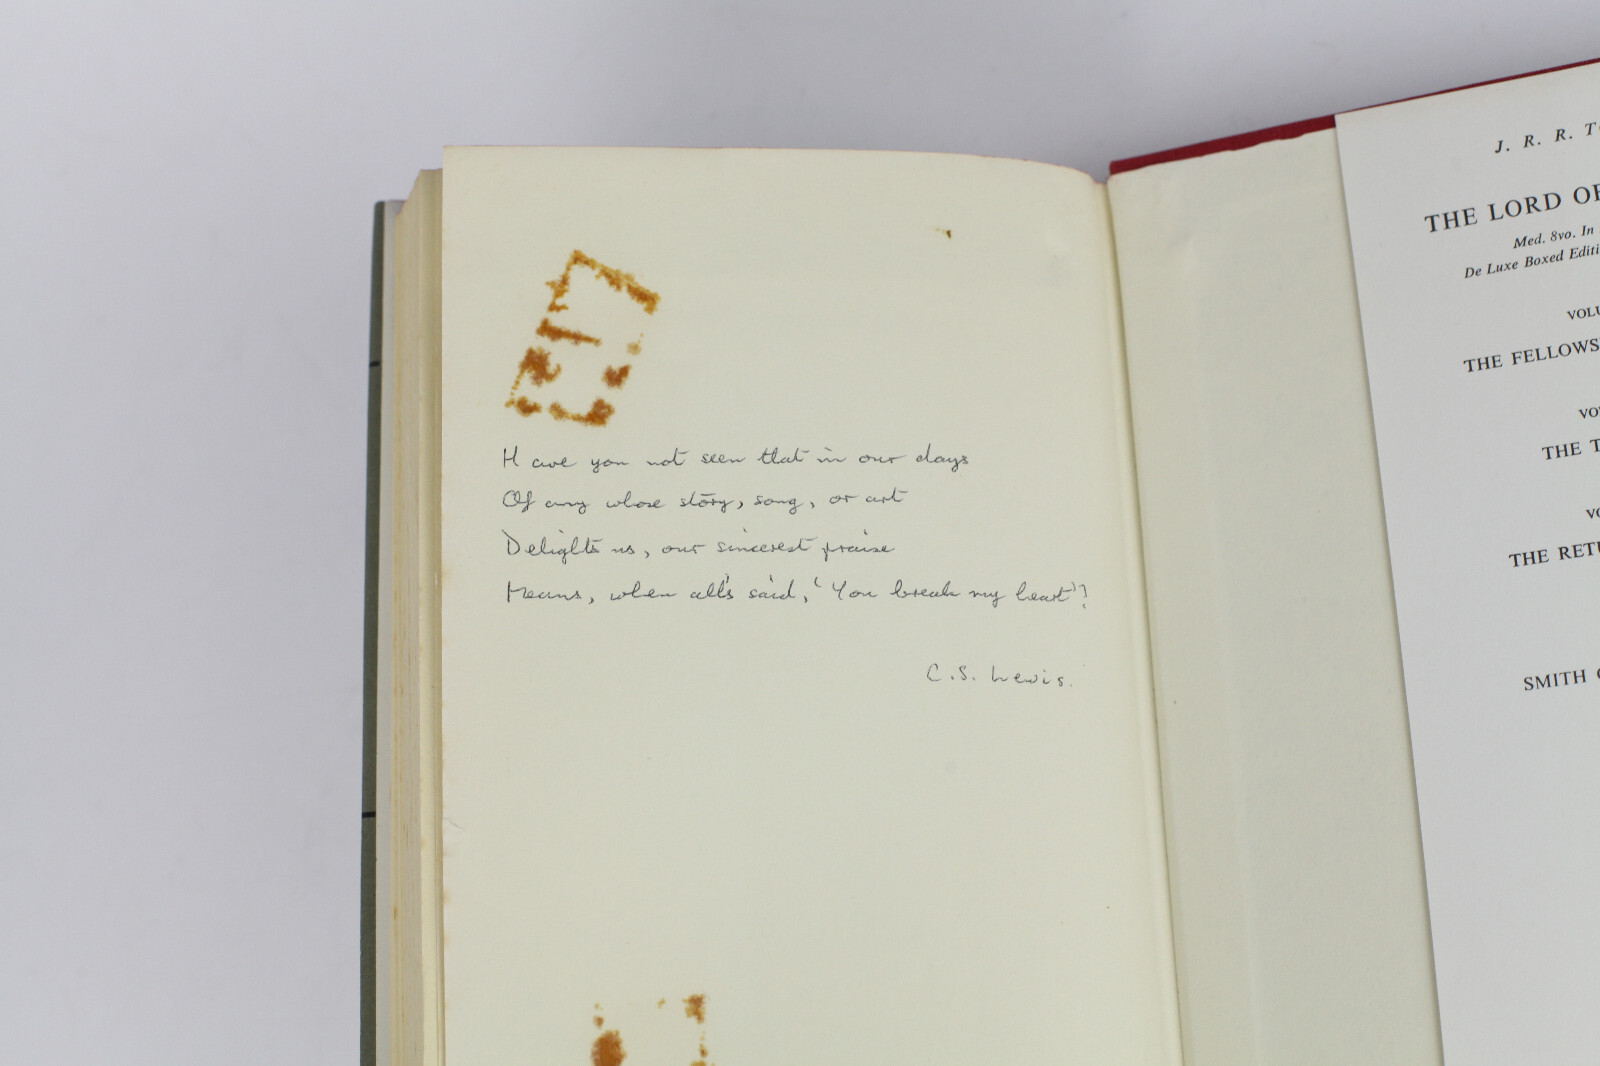 Have you not seen that in our days
Of any whose story, song, or art
Delights us, our sincerest praise
Means, when all's said, 'You break my heart'?
C.S. Lewis.
J. R. R. TO
THE LORD OF
Med. 8vo. In
De Luxe Boxed Editi
VOLU
THE FELLOWS
VO
THE T
VO
THE RETU
SMITH